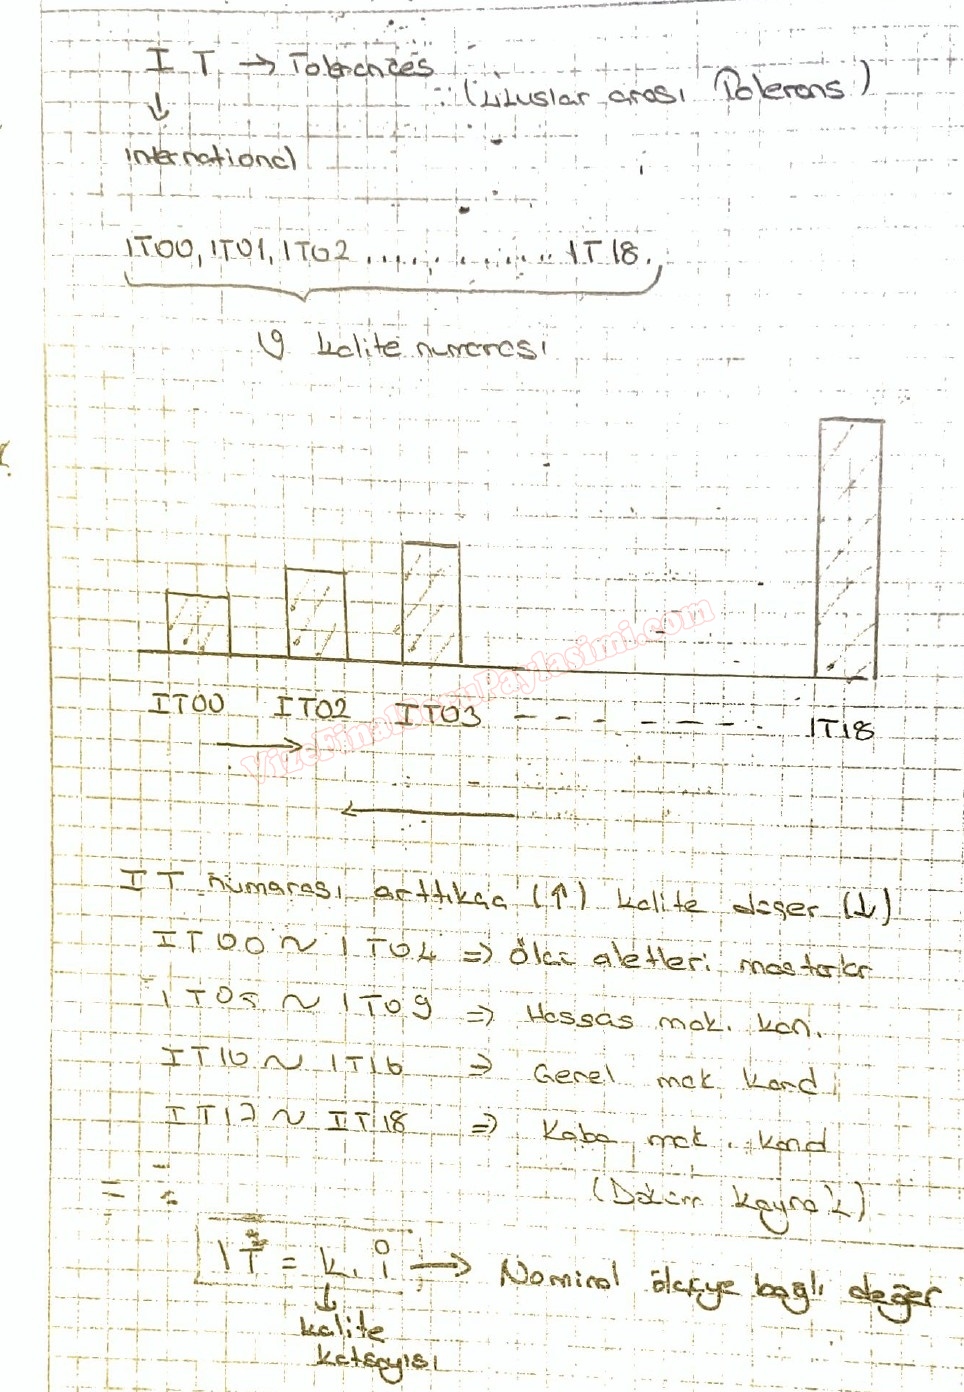 I T → Tolerances
(Uluslar arası Tolerans)
↓
International
IT00, IT01, IT02 ................ IT18.
↳ kalite numarası
IT00 IT02 IT03 - - - - - - - - IT18
→
←
VizeFinalSoruPaylasimi.com
IT numarası arttıkça (↑) kalite değer (↓)
IT00 ~ IT04 => ölçü aletleri mastarlar
IT05 ~ IT09 => Hassas mak. kon.
IT10 ~ IT16 => Genel mak kond.
IT17 ~ IT18 => Kaba mak. kond
(Döküm kaynak)
IT = k. i → Nominal ölçüye bağlı değer
↓
kalite
katsayısı